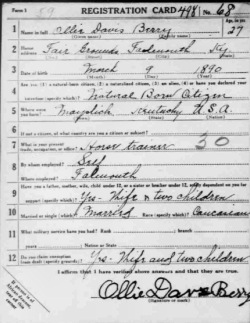 Form 1 59 REGISTRATION CARD 498 No. 68
1 Name in full Ollie Davis Berry Age, in yrs. 27
2 Home address Fair Grounds Falmouth Ky
3 Date of birth March 9 1890
4 Natural Born Citizen
5 Where were you born? Mayslick Kentucky U.S.A.
6 If not a citizen, of what country are you a citizen or subject?
7 What is your present trade, occupation, or office? Horse trainer 30
8 By whom employed? Self
Where employed? Falmouth
9 Have you a father, mother, wife, child under 12, or a sister or brother under 12, solely dependent on you for support (specify which)? Yes - Wife & two children
10 Married or single (which)? Married Race (specify which)? Caucasian
11 What military service have you had? Rank Branch
years Nation or State
12 Do you claim exemption from draft (specify grounds)? Yes - Wife and two children
I affirm that I have verified above answers and that they are true.
Ollie Davis Berry
(Signature or mark)